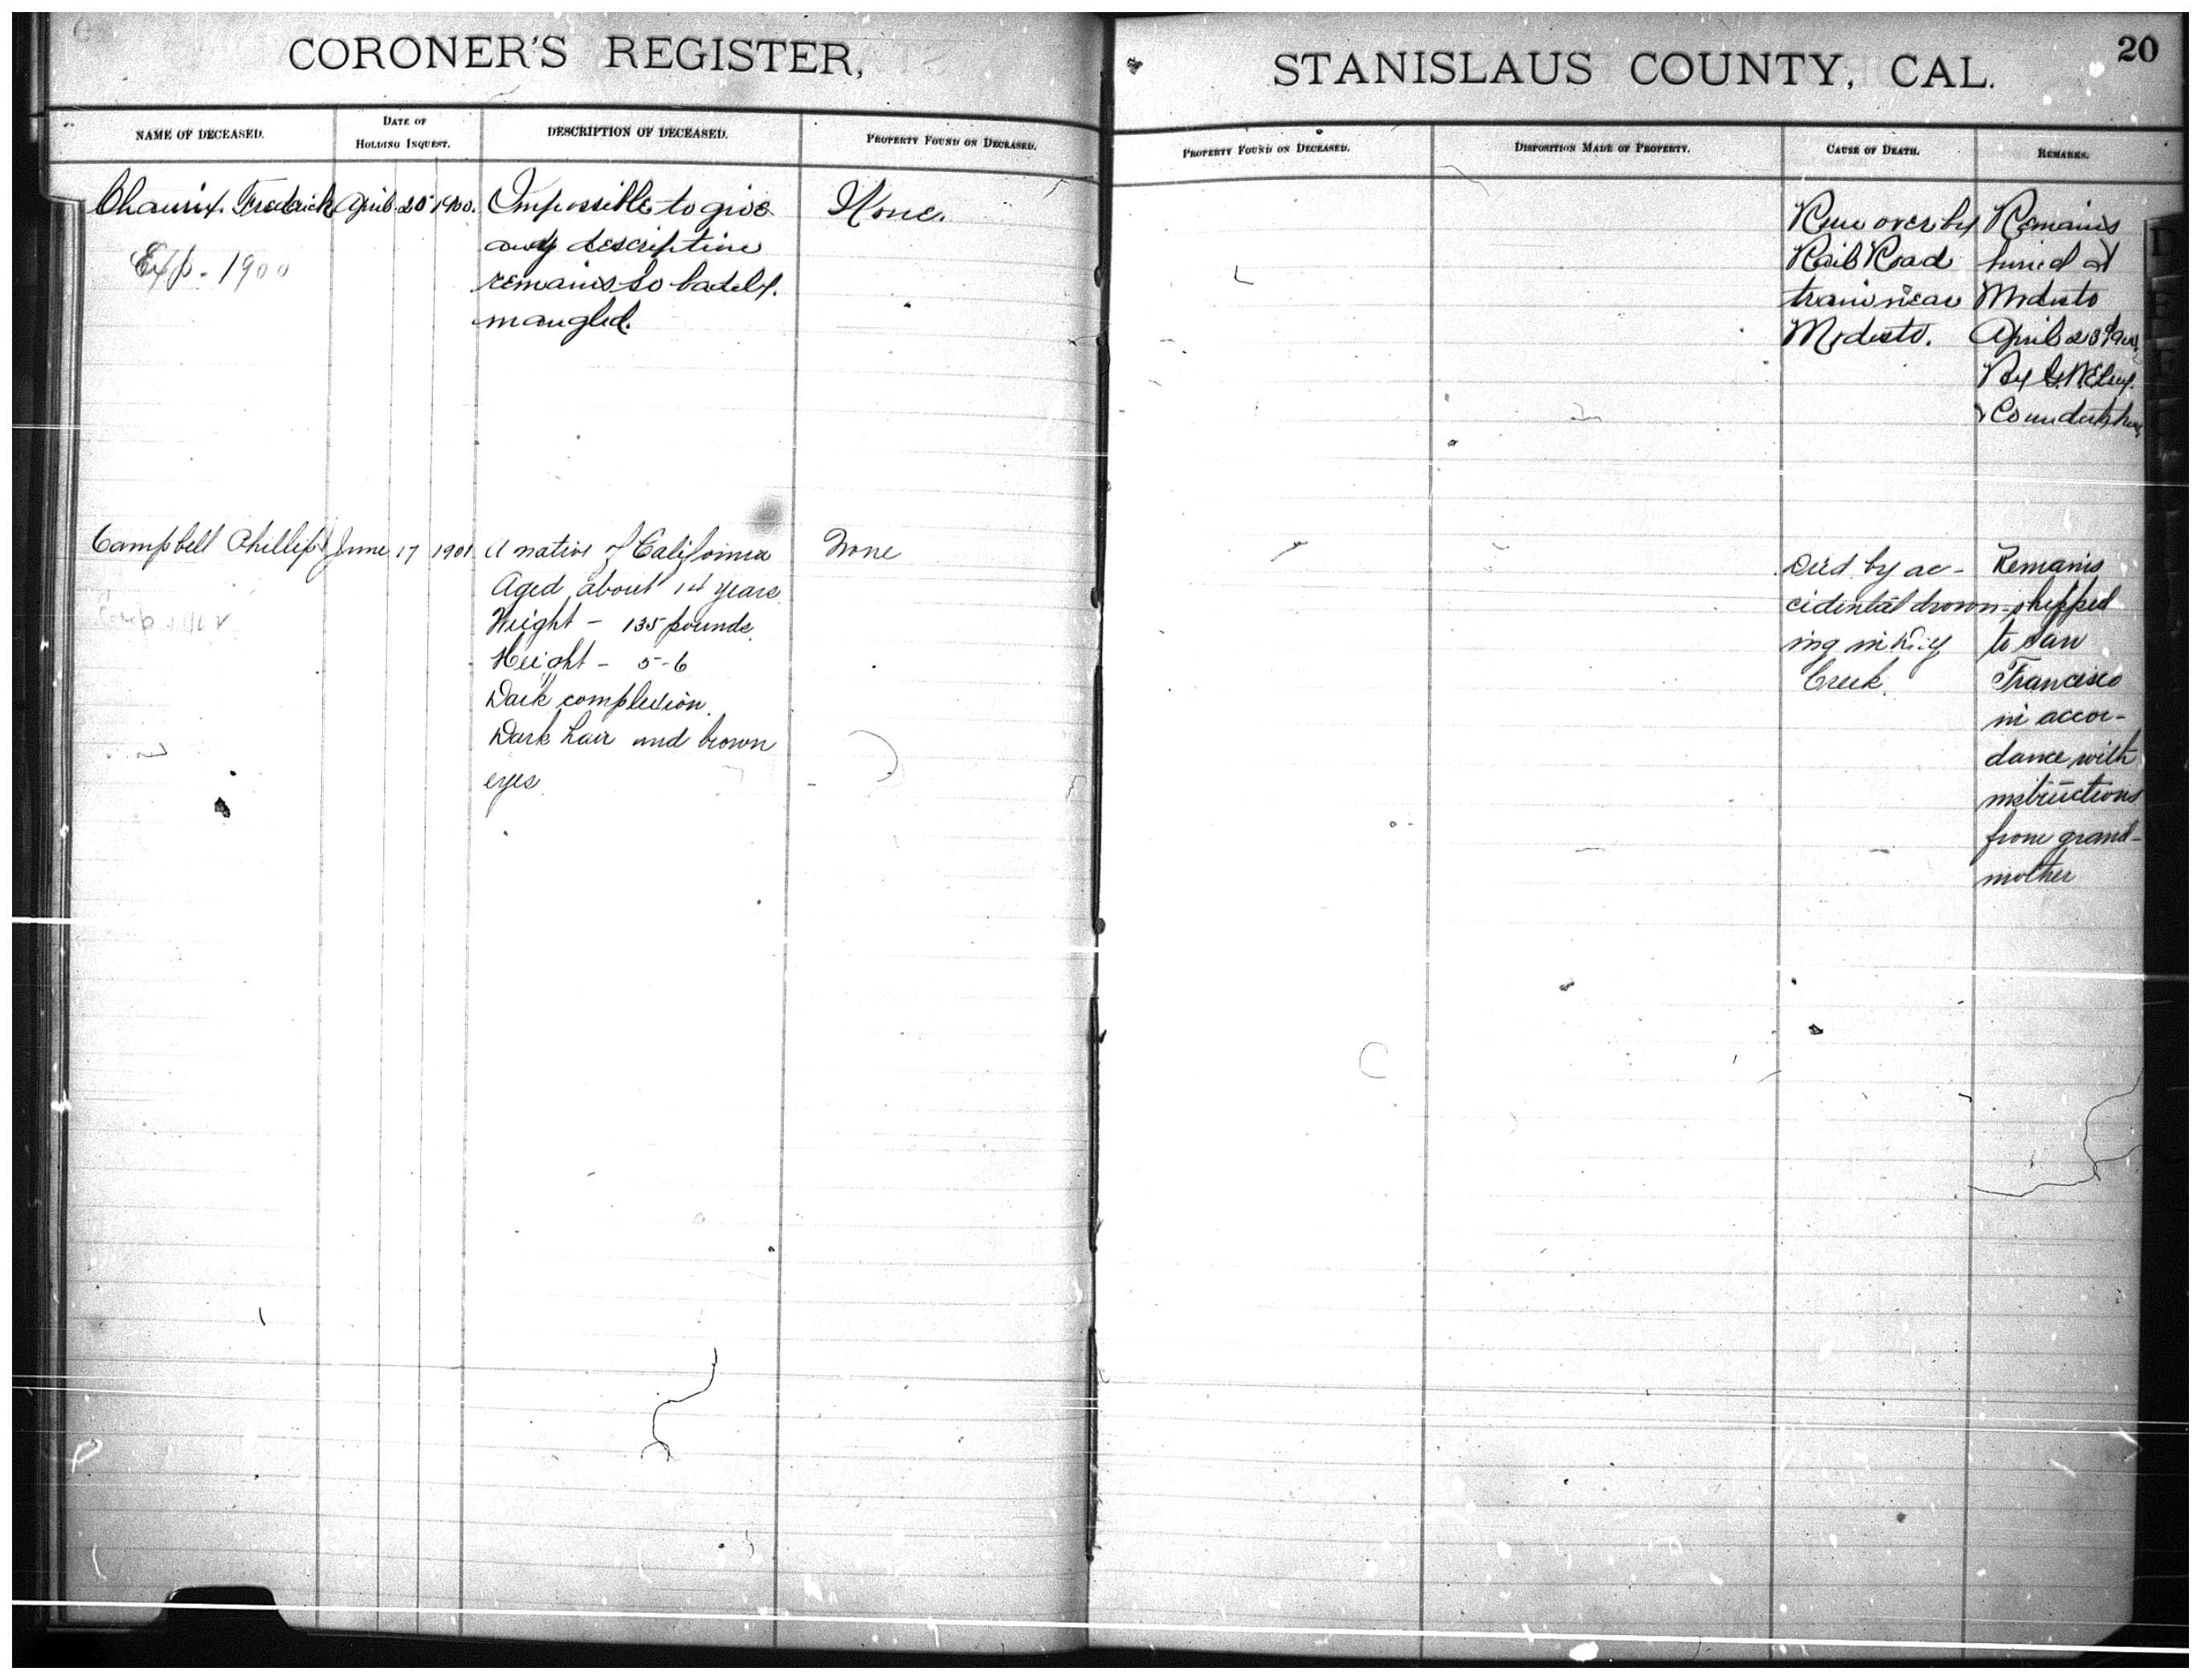 CORONER'S REGISTER,
STANISLAUS COUNTY, CAL.
20
NAME OF DECEASED.
DATE OF
HOLDING INQUEST.
DESCRIPTION OF DECEASED.
PROPERTY FOUND ON DECEASED.
PROPERTY FOUND ON DECEASED.
DISPOSITION MADE OF PROPERTY.
CAUSE OF DEATH.
REMARKS.
Fredrick
April 1900.
Exp. 1900
Impossible to give
any description
remains so badely
mangled.
None.
Run over by
Rail Road
train near
Modesto.
Remains
buried at
Modesto
April
By
& Co
Campbell Phillip
June 17 1901
A native of California
Aged about 14 years
Weight - 135 pounds
Height - 5-6
Dark complexion.
Dark hair and brown
eyes
None
Died by ac-
cidental drown-
ing in
Creek.
Remains
shipped
to San
Francisco
in accor-
dance with
instructions
from grand-
mother